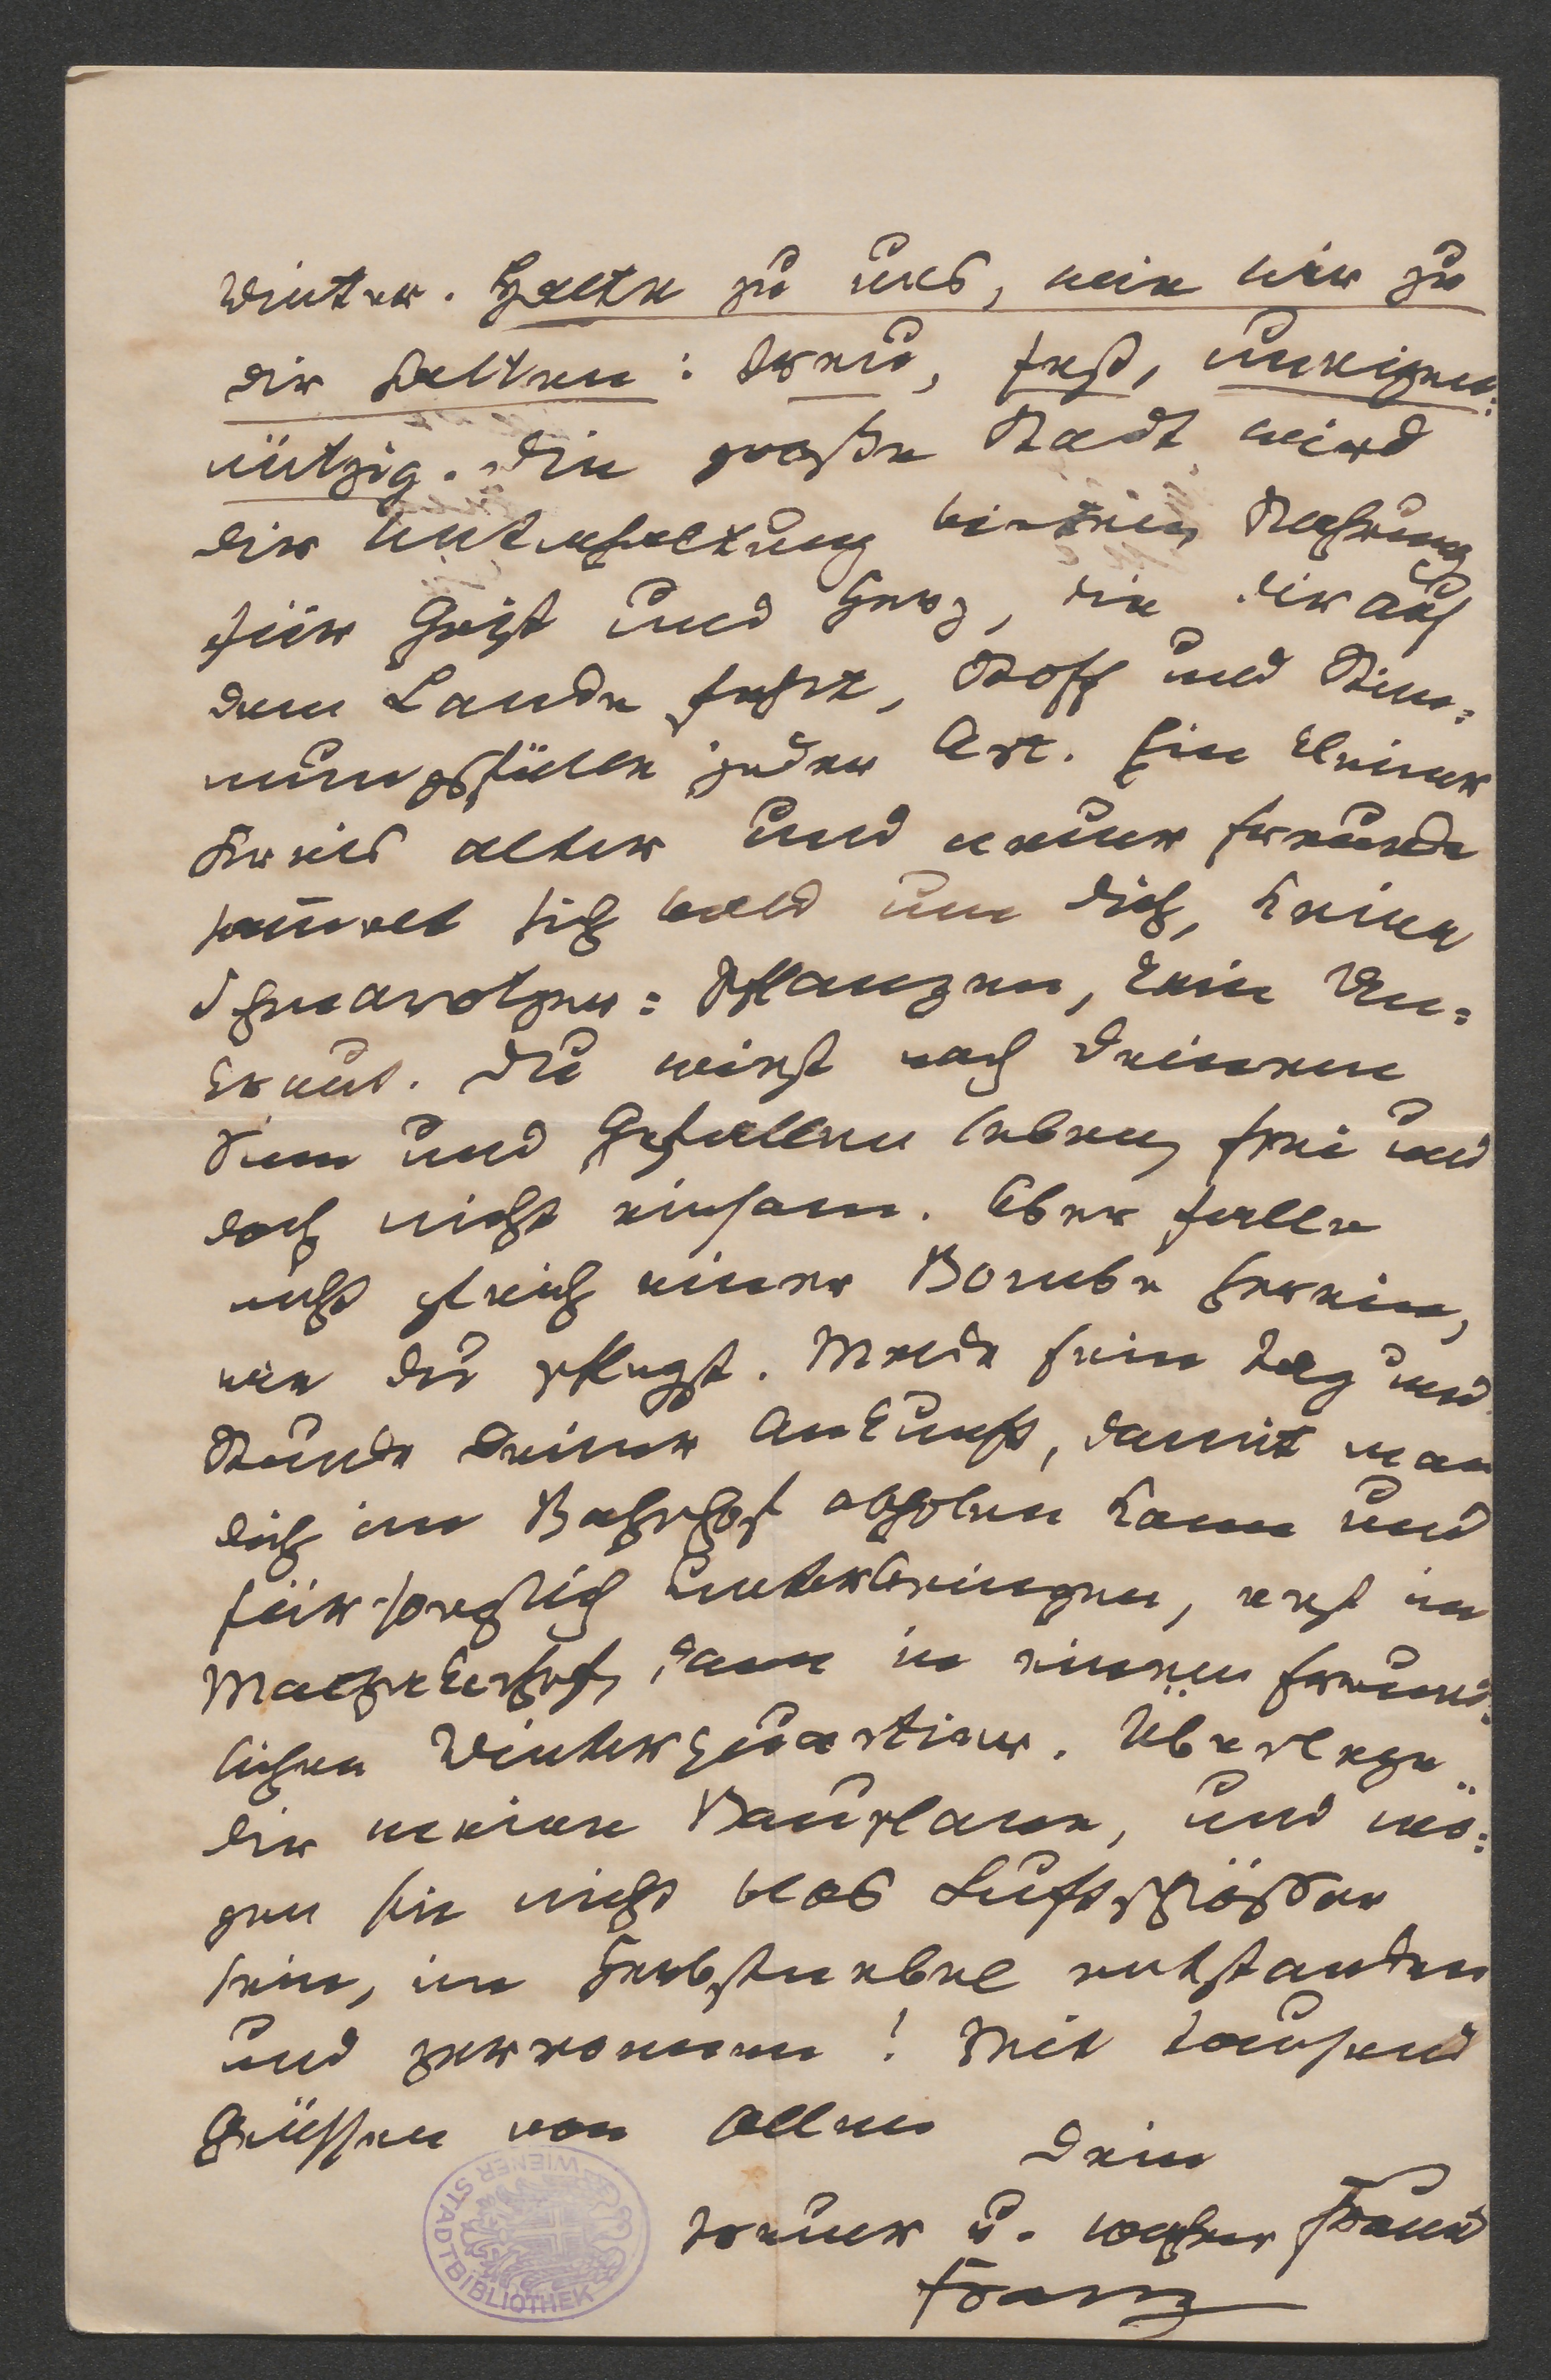 Winter. Halte zu uns, wie wir zu
dir halten: treu, fest, uneigen=
nützig. Die große Stadt wird
dir Unterhaltung bieten, Nahrung
für Geist und Herz, die dir auf
dem Lande fehlt, Stoff und Stim=
mungsfülle jeder Art. Ein kleiner
Kreis alter und neuer Freunde
sam̄elt sich bald um dich, keine
Schmarotzer=Pflanzen, kein Un=
kraut. Du wirst nach Deinem
Sinn und Gefallen leben, frei und
doch nicht einsam. Aber falle
nicht gleich einer Bombe herein,
wie du pflegst. Melde fein Tag und
Stunde Deiner Ankunft, damit man
dich im Bahnhof abholen kann und
fürsorglich unterbringen, erst im
dann in einem freund=
lichen Winterquartier. Überlege
dir meine Baupläne, und mö=
gen sie nicht blos Luftschlösser
sein, im Herbstnebel entstanden
und zerronnen! Mit tausend
Grüssen von Allen
Dein
treuer u. wahrer Freund
Franz
WIENER STADTBIBLIOTHEK